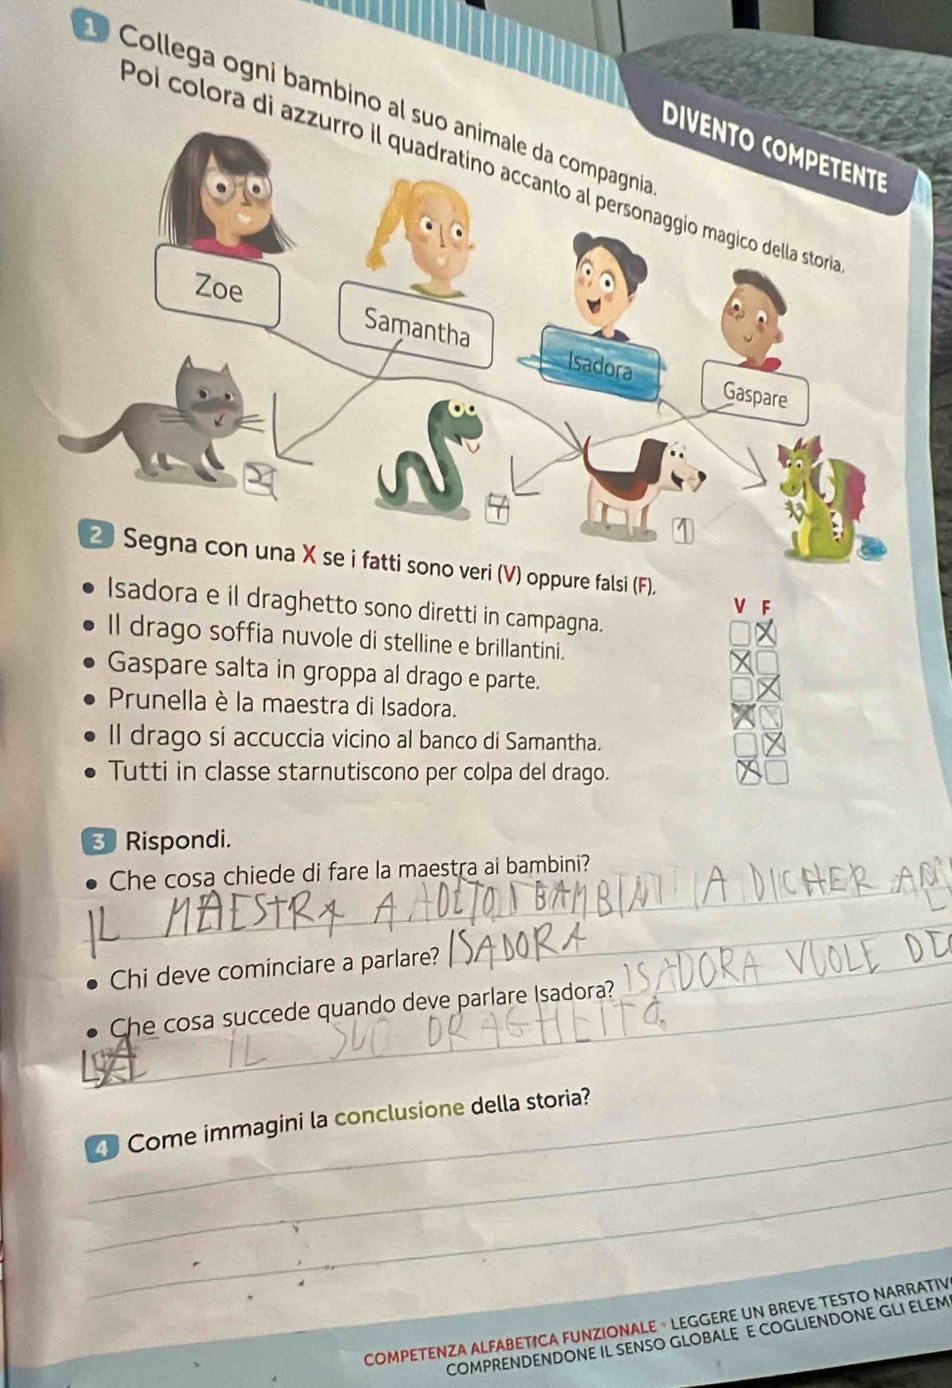 1 Collega ogni bambino al suo animale da compagnia.
Poi colora di azzurro il quadratino accanto al personaggio magico della storia.
DIVENTO COMPETENTE
Zoe
Samantha
Isadora
Gaspare
4
1
2 Segna con una X se i fatti sono veri (V) oppure falsi (F).
V F
• Isadora e il draghetto sono diretti in campagna.
• Il drago soffia nuvole di stelline e brillantini.
• Gaspare salta in groppa al drago e parte.
• Prunella è la maestra di Isadora.
• Il drago si accuccia vicino al banco di Samantha.
• Tutti in classe starnutiscono per colpa del drago.
3 Rispondi.
• Che cosa chiede di fare la maestra ai bambini?
IL MAESTRA A BAMBINI A
• Chi deve cominciare a parlare? ISADORA
• Che cosa succede quando deve parlare Isadora? ISADORA VUOLE
IL SUO
4 Come immagini la conclusione della storia?
COMPETENZA ALFABETICA FUNZIONALE • LEGGERE UN BREVE TESTO NARRATIV
COMPRENDENDONE IL SENSO GLOBALE E COGLIENDONE GLI ELEM